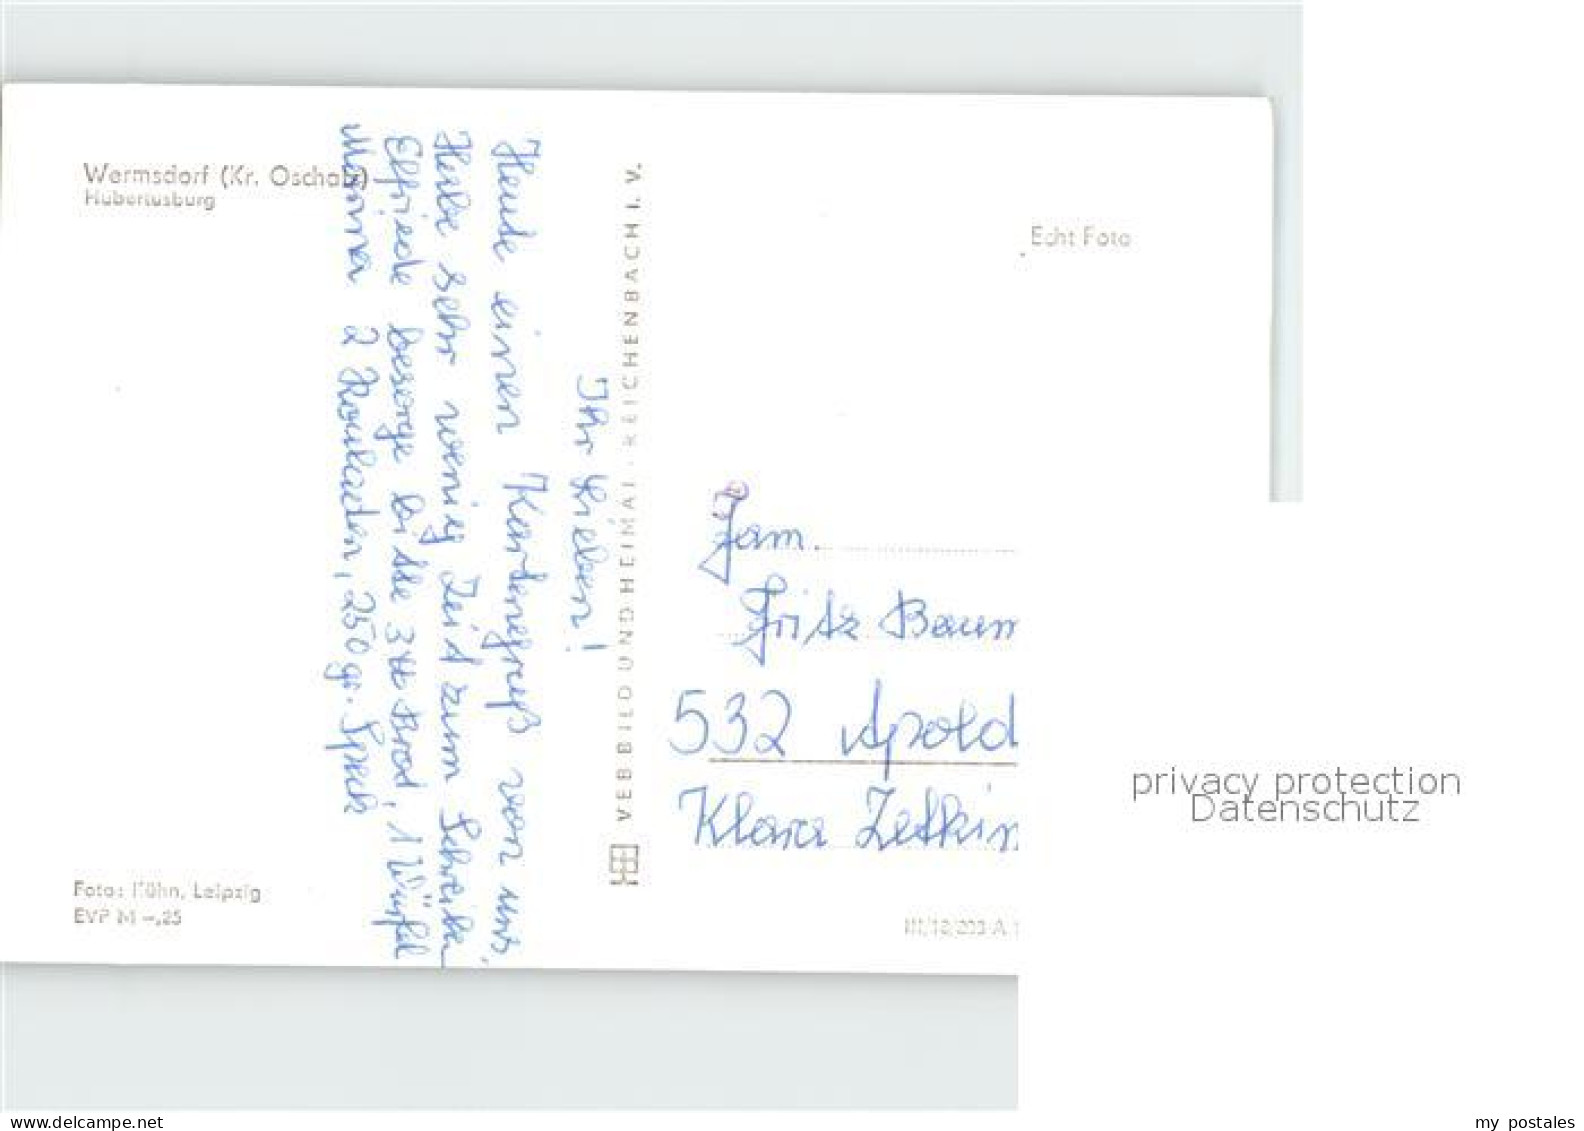 Wermsdorf (Kr. Oschatz)
Hubertusburg
Ihr Lieben!
Heute einen Kartengruß von uns,
Habe sehr wenig Zeit zum Schreiben
Elfriede besorge bitte 3 Brot, 1 Würfel
Manna 2 Rouladen, 250 gr. Speck
Foto: Kühn, Leipzig
EVP M -,25
VEB BILD UND HEIMAT · REICHENBACH I. V.
Echt Foto
Fam.
Fritz Baum
532 Apold
Klara Zetkin
III/18/203 A 1
privacy protection
Datenschutz
www.delcampe.net
my postales